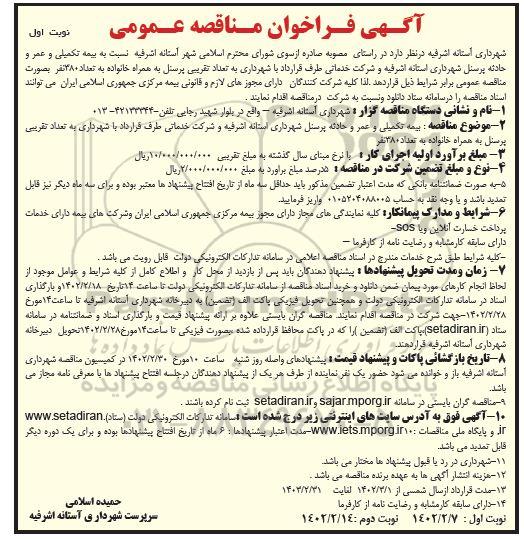 آگهـی فـراخوان مـناقصه عـمومی
نوبت اول
شهرداری آستانه اشرفیه درنظر دارد در راستای مصوبه صادره ازسوی شورای محترم اسلامی شهر آستانه اشرفیه نسبت به بیمه تکمیلی و عمر و
حادثه پرسنل شهرداری استانه اشرفیه و شرکت خدماتی طرف قرارداد با شهرداری به تعداد تقریبی پرسنل به همراه خانواده به تعداد۳۸۰نفر بصورت
مناقصه عمومی برابر شرایط ذیل قراردهد .لذا کلیه شرکت کنندگان دارای مجوز های لازم و قانونی بیمه مرکزی جمهوری اسلامی ایران می توانند
اسناد مناقصه را درسامانه ستاد دانلود ونسبت به شرکت درمناقصه اقدام نمایند .
۱-نام و نشانی دستگاه مناقصه گزار : شهرداری آستانه اشرفیه – واقع در بلوار شهید رجایی تلفن-۴۲۱۳۳۳۴۴-۰۱۳
۲-موضوع مناقصه : بیمه تکمیلی و عمر و حادثه پرسنل شهرداری آستانه اشرفیه و شرکت خدماتی طرف قرارداد با شهرداری به تعداد تقریبی
پرسنل به همراه خانواده به تعداد۳۸۰نفر
۳- مبلغ برآورد اولیه اجرای کار : با نرخ مبنای سال گذشته به مبلغ تقریبی ۱۰/۰۰۰/۰۰۰/۰۰۰ریال
۴-نوع و مبلغ تضمین شرکت در مناقصه : ۵درصد مبلغ برآورد به مبلغ ۲/۰۰۰/۰۰۰/۰۰۰ریال
۵-به صورت ضمانتنامه بانکی که مدت اعتبار تضمین مذکور باید حداقل سه ماه از تاریخ افتتاح پیشنهاد ها معتبر بوده و برای سه ماه دیگر نیز قابل
تمدید باشد و یا وجه نقد به حساب ۰۱۰۵۲۰۴۰۸۸۰۰۵ واریز فرمایید.
۶-شرایط و مدارک پیمانکار: کلیه نمایندگی های مجاز دارای مجوز بیمه مرکزی جمهوری اسلامی ایران وشرکت های بیمه دارای خدمات
پرداخت خسارت آنلاین ویا sos-
دارای سابقه کارمشابه و رضایت نامه از کارفرما –
-کلیه شرایط طبق شرح خدمات مندرج در اسناد مناقصه اعلامی در سامانه تدارکات الکترونیکی دولت قابل رویت می باشد .
۷- زمان ومدت تحویل پیشنهادها : پیشنهاد دهندگان باید پس از بازدید از محل کار و اطلاع کامل از کلیه شرایط و عوامل موجود از
لحاظ انجام کارهای مورد پیمان ضمن دانلود و خرید اسناد مناقصه از سامانه تدارکات الکترونیکی دولت تا ساعت ۱۴تاریخ ۱۴۰۲/۲/۱۸و بارگذاری
اسناد در سامانه تدارکات الکترونیکی دولت و همچنین تحویل فیزیکی پاکت الف (تضمین) به دبیرخانه شهرداری آستانه اشرفیه تا ساعت۱۴مورخ
۱۴۰۲/۲/۲۸–جهت شرکت در مناقصه اقدام نمایند. مناقصه گران بایستی علاوه بر ارائه پیشنهاد قیمت و بارگذاری اسناد و ضمانتنامه در سامانه
ستاد (setadiran.ir)پاکت الف (تضمین )را که در پاکت محافظ قرارداده شده ،بصورت فیزیکی تا ساعت۱۴مورخ۱۴۰۲/۲/۲۸تحویل دبیرخانه
شهرداری آستانه اشرفیه قراردهند.
۸-تاریخ بازگشائی پاکات و پیشنهاد قیمت : پیشنهادهای واصله روز شنبه ساعت ۱۰مورخ ۱۴۰۲/۲/۳۰ در کمیسیون مناقصه شهرداری
آستانه اشرفیه باز و خوانده می شود حضور یک نفر نماینده از طرف هر یک از پیشنهاد دهندگان درجلسه افتتاح پیشنهاد ها با معرفی نامه مجاز می
باشد.
۹-مناقصه گران بایستی در سامانه sajar.mporg.ir وsetadiran.ir ثبت نام کرده باشند .
۱۰-آگهی فوق به آدرس سایت های اینترنتی زیر درج شده است :سامانه تدارکات الکترونیکی دولت (ستاد).www.setadiran
ir و پایگاه ملی مناقصات :www.iets.mporg.ir۱۰-مدت اعتبار پیشنهادها : ۶ ماه از تاریخ افتتاح پیشنهادها بوده و برای یک دوره دیگر
قابل تمدید می باشد.
۱۱-شهرداری در رد یا قبول پیشنهاد ها مختار می باشد.
۱۲-هزینه انتشار آگهی ها به عهده برنده مناقصه می باشد .
۱۳-مدت قرارداد ازسال شمسی از ۱۴۰۲/۳/۱ لغایت ۱۴۰۳/۲/۳۱
۱۴-دارای سابقه کارمشابه و رضایت نامه از کارفرما
نوبت اول : ۱۴۰۲/۲/۷ نوبت دوم :۱۴۰۲/۲/۱۴
حمیده اسلامی
سرپرست شهرداری آستانه اشرفیه